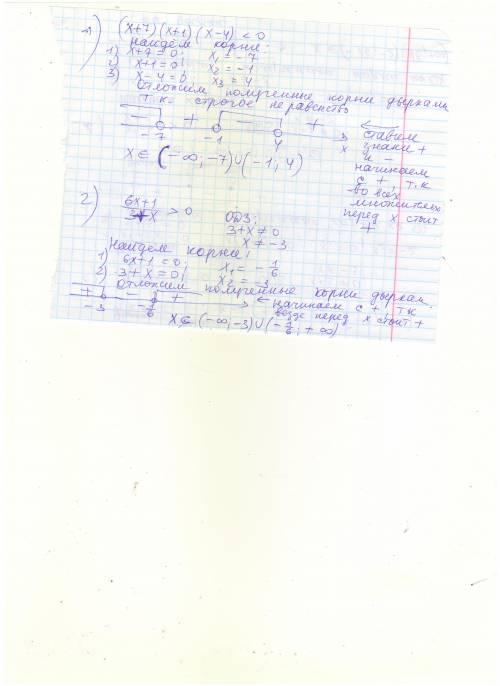 1) (x+7)(x+1)(x-4) < 0
Найдём корни:
1) x+7=0; x₁ = -7
2) x+1=0; x₂ = -1
3) x-4=0; x₃ = 4
Отложим полученные корни дырками
т.к. строгое неравенство
- + - +
-7 -1 4 x
x ∈ (-∞; -7)∪(-1; 4)
← ставим
знаки +
и -
начинаем
с +, т.к
во всех
множителях
перед x стоит
+
2) 6x+1 / 3+x > 0
ОДЗ:
3+x ≠ 0
x ≠ -3
Найдем корни:
1) 6x+1=0; x₁ = -1/6
2) 3+x=0; x₂ = -3
Отложим полученные корни дыркам.
+ - +
-3 -1/6
← начинаем с +, т.к
везде перед x стоит +
x ∈ (-∞; -3)∪(-1/6; +∞)